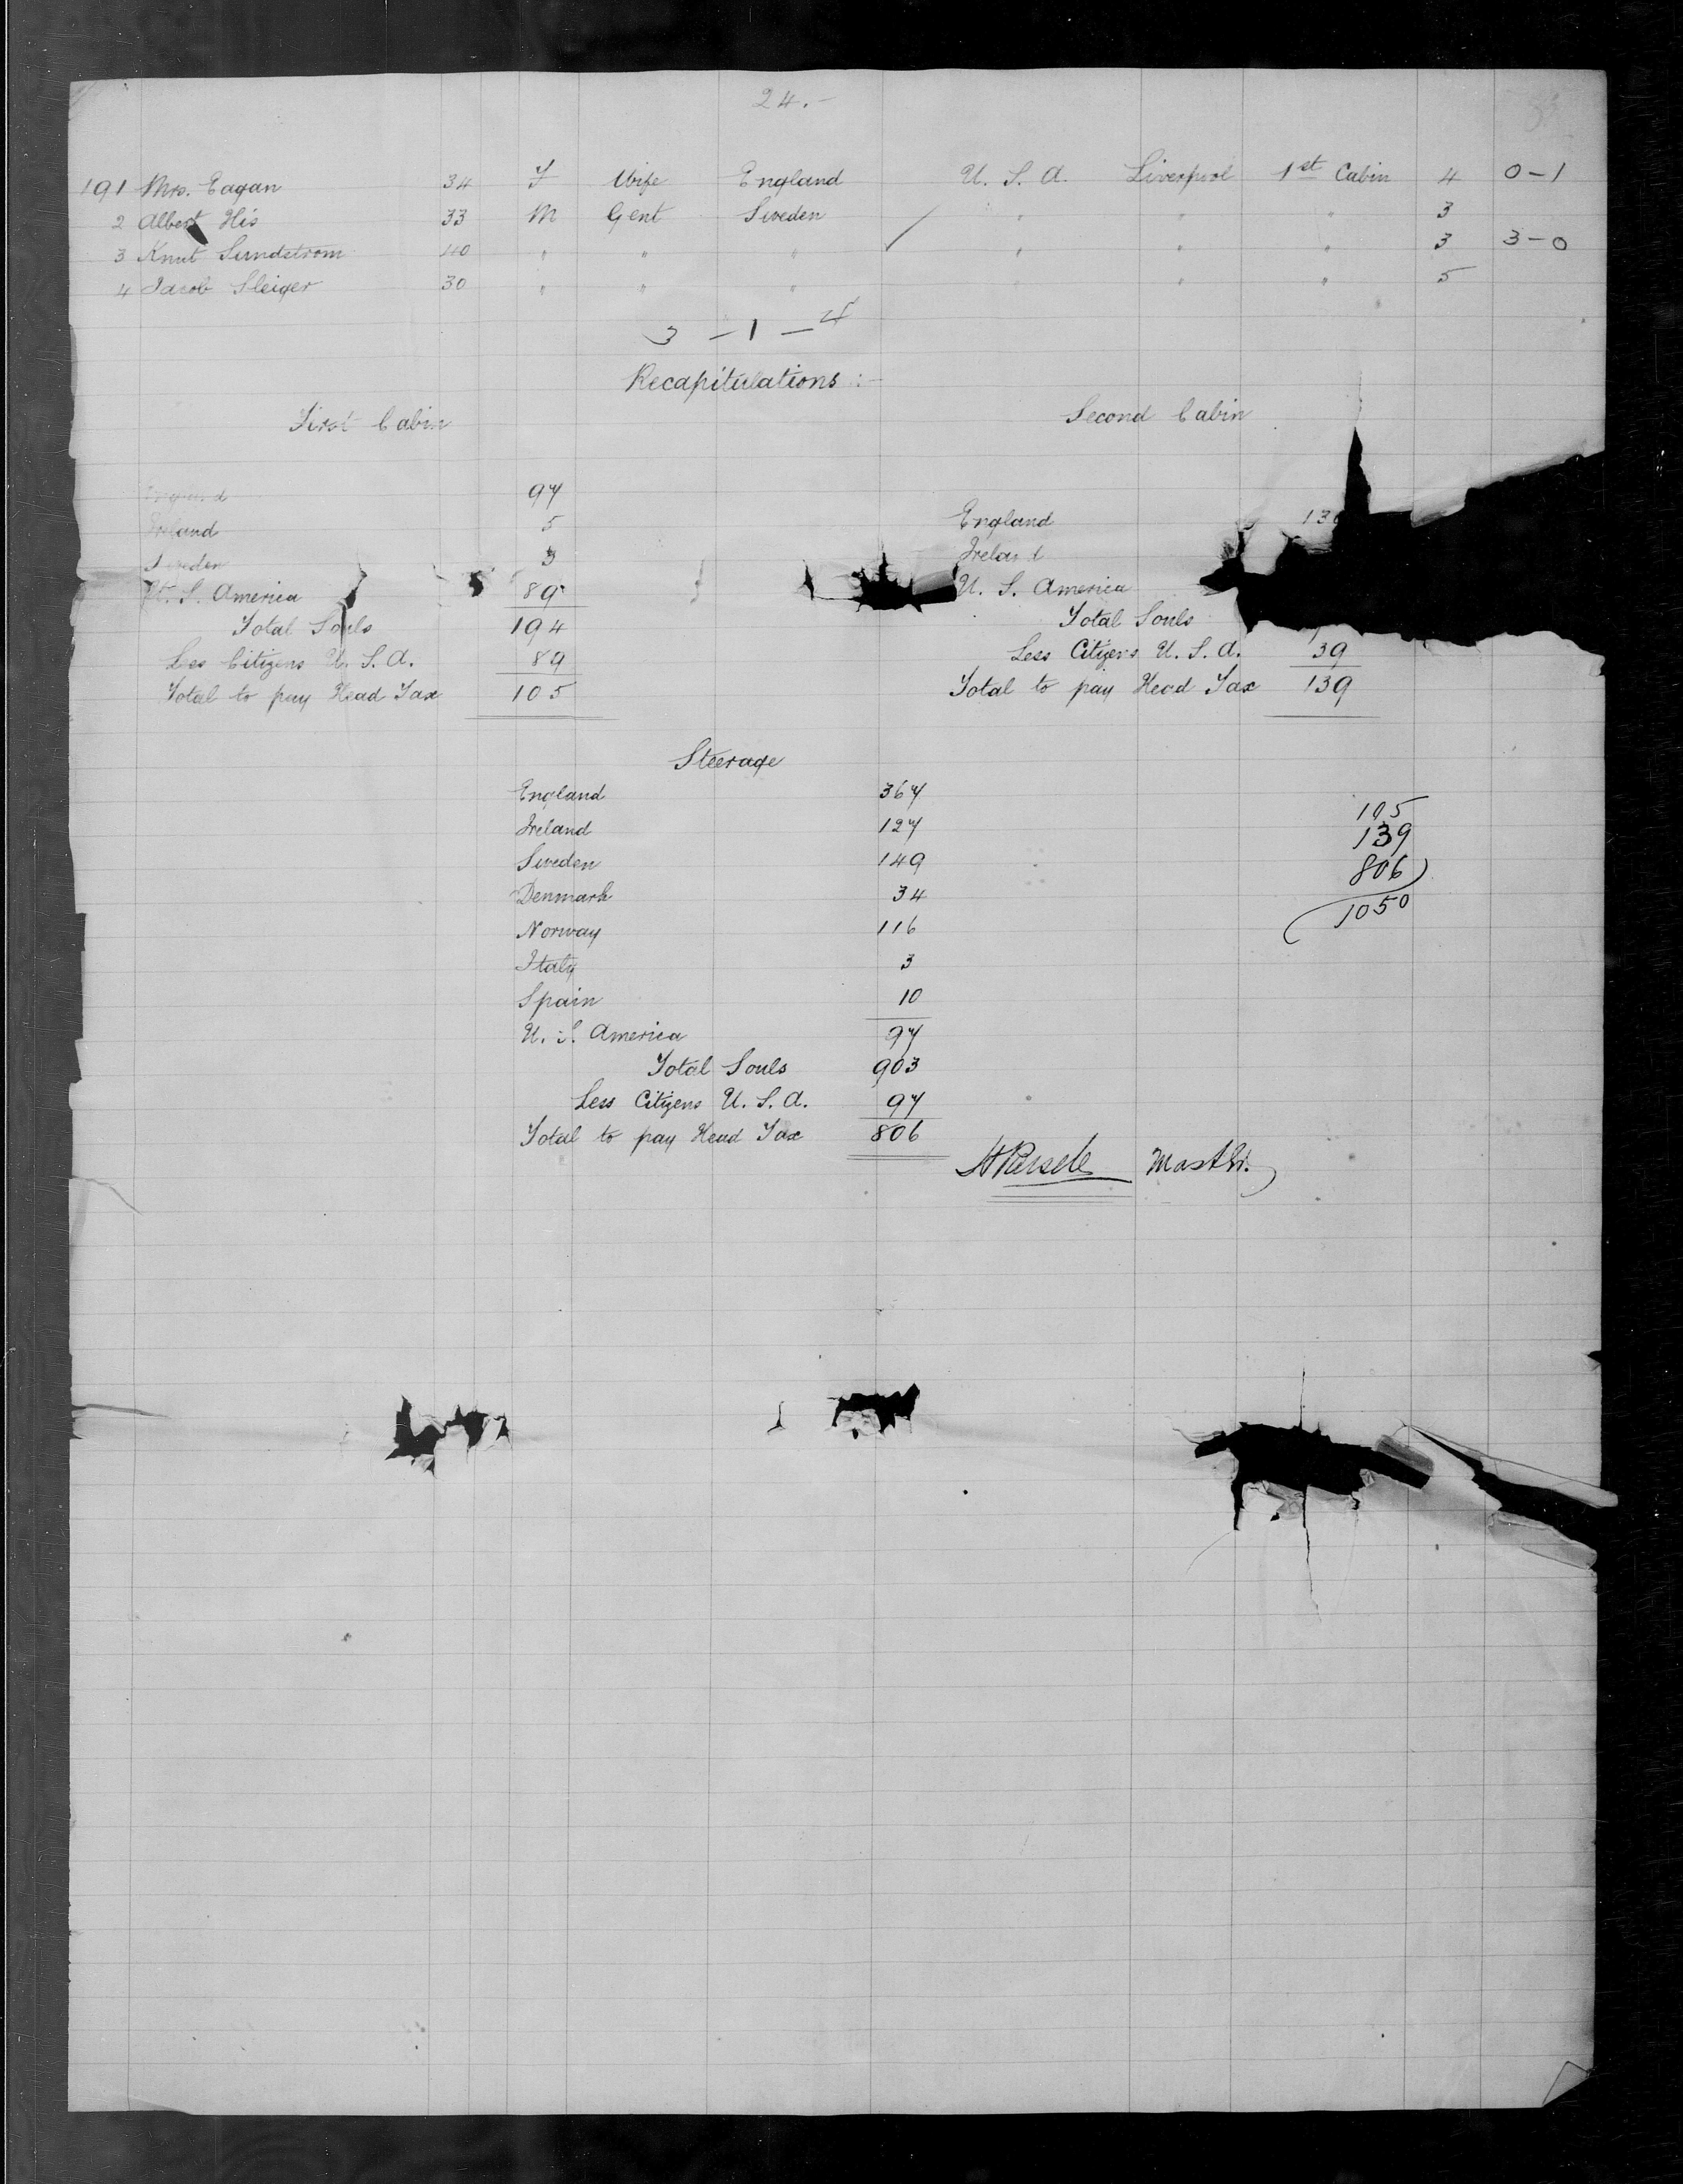 24.-
191 Mrs. Eagan 34 F Wife England U. S. A. Liverpool 1st Cabin 4 0-1
2 Albert His 33 M Gent Sweden " " " 3
3 Knut Sundstrom 40 " " " " " " 3 3-0
4 Jacob Sleiger 30 " " " " " 5
3 - 1 - 4
Recapitulations :-
First Cabin
England 97
Ireland 5
Sweden 3
U. S. America 89
Total Souls 194
Less Citizens U. S. A. 89
Total to pay Head Tax 105
Second Cabin
England
Ireland
U. S. America
Total Souls
Less Citizens U. S. A. 39
Total to pay Head Tax 139
Steerage
England 367
Ireland 127
Sweden 149
Denmark 34
Norway 116
Italy 3
Spain 10
U. S. America 97
Total Souls 903
Less Citizens U. S. A. 97
Total to pay Head Tax 806
105
139
806
1050
Master.